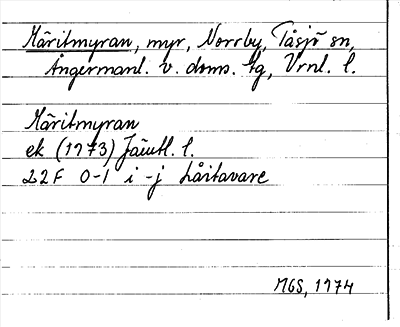 Märitmyran, myr, Norrby, Tåsjö sn,
Ångermanl. v. doms. tg, Vrnl. l.
Märitmyran
ek (1973) Jämtl. l.
22F 0-1 i-j Låitavare
MGS, 1974